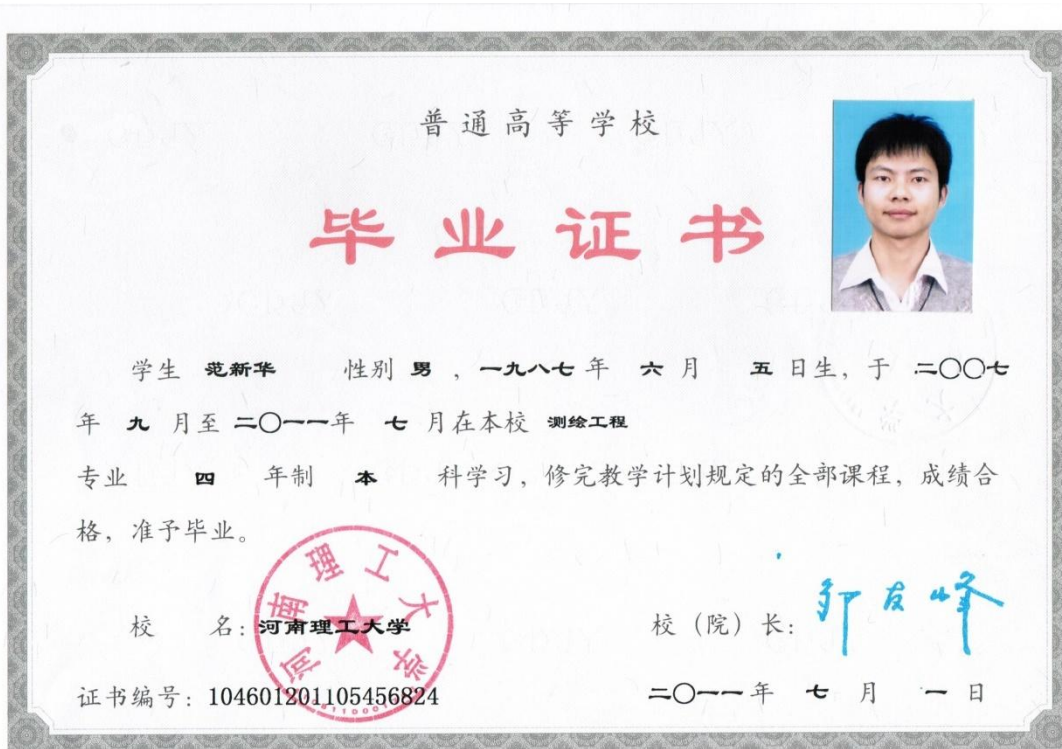 普通高等学校
毕业证书
学生 范新华 性别 男 ，一九八七 年 六 月 五 日生，于 二〇〇七
年 九 月至 二〇一一年 七 月在本校 测绘工程
专业 四 年制 本 科学习，修完教学计划规定的全部课程，成绩合
格，准予毕业。
河南理工大学
校 名：河南理工大学
校（院）长：邹友峰
证书编号：104601201105456824
二〇一一年 七 月 一 日